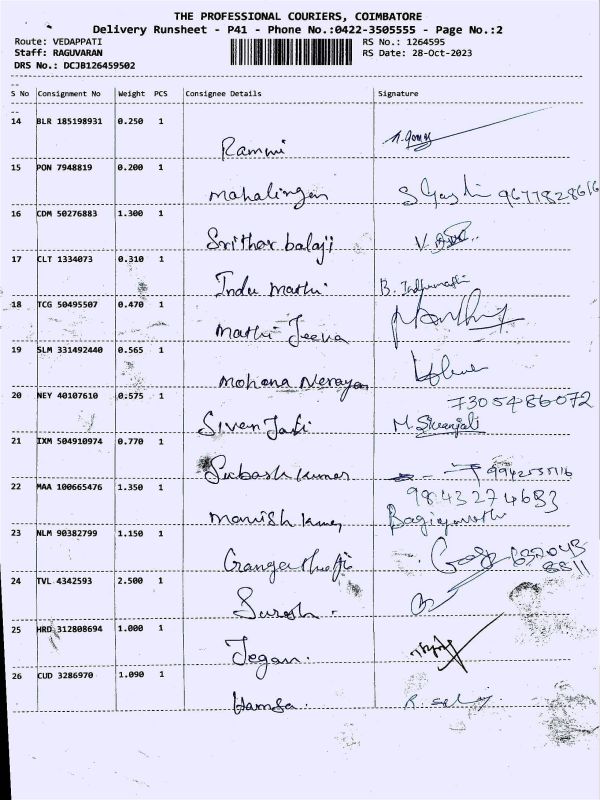 THE PROFESSIONAL COURIERS, COIMBATORE
Delivery Runsheet - P41 - Phone No.:0422-3505555 - Page No.:2
Route: VEDAPPATI
RS No.: 1264595
Staff: RAGUVARAN
RS Date: 28-Oct-2023
DRS No.: DCJB126459502
S No Consignment No Weight PCS Consignee Details Signature
14 BLR 185198931 0.250 1
Rammi
15 PON 7948819 0.200 1
Mahalingam 9677828616
16 CDM 50276883 1.300 1
Srithar balaji
17 CLT 1334073 0.310 1
Indu Mathi B. Indhumathi
18 TCG 50495507 0.470 1
Mathi Jeeva
19 SLM 331492440 0.565 1
Mohana Narayan
20 NEY 40107610 0.575 1 7305486072
M. Sivanjali
21 IXM 504910974 0.770 1
Subash kumar
22 MAA 100665476 1.350 1 9843274683
Manish kumar
23 NLM 90382799 1.150 1
24 TVL 4342593 2.500 1
Suresh.
25 HRD 312808694 1.000 1
Jegan.
26 CUD 3286970 1.090 1
Hamsa.